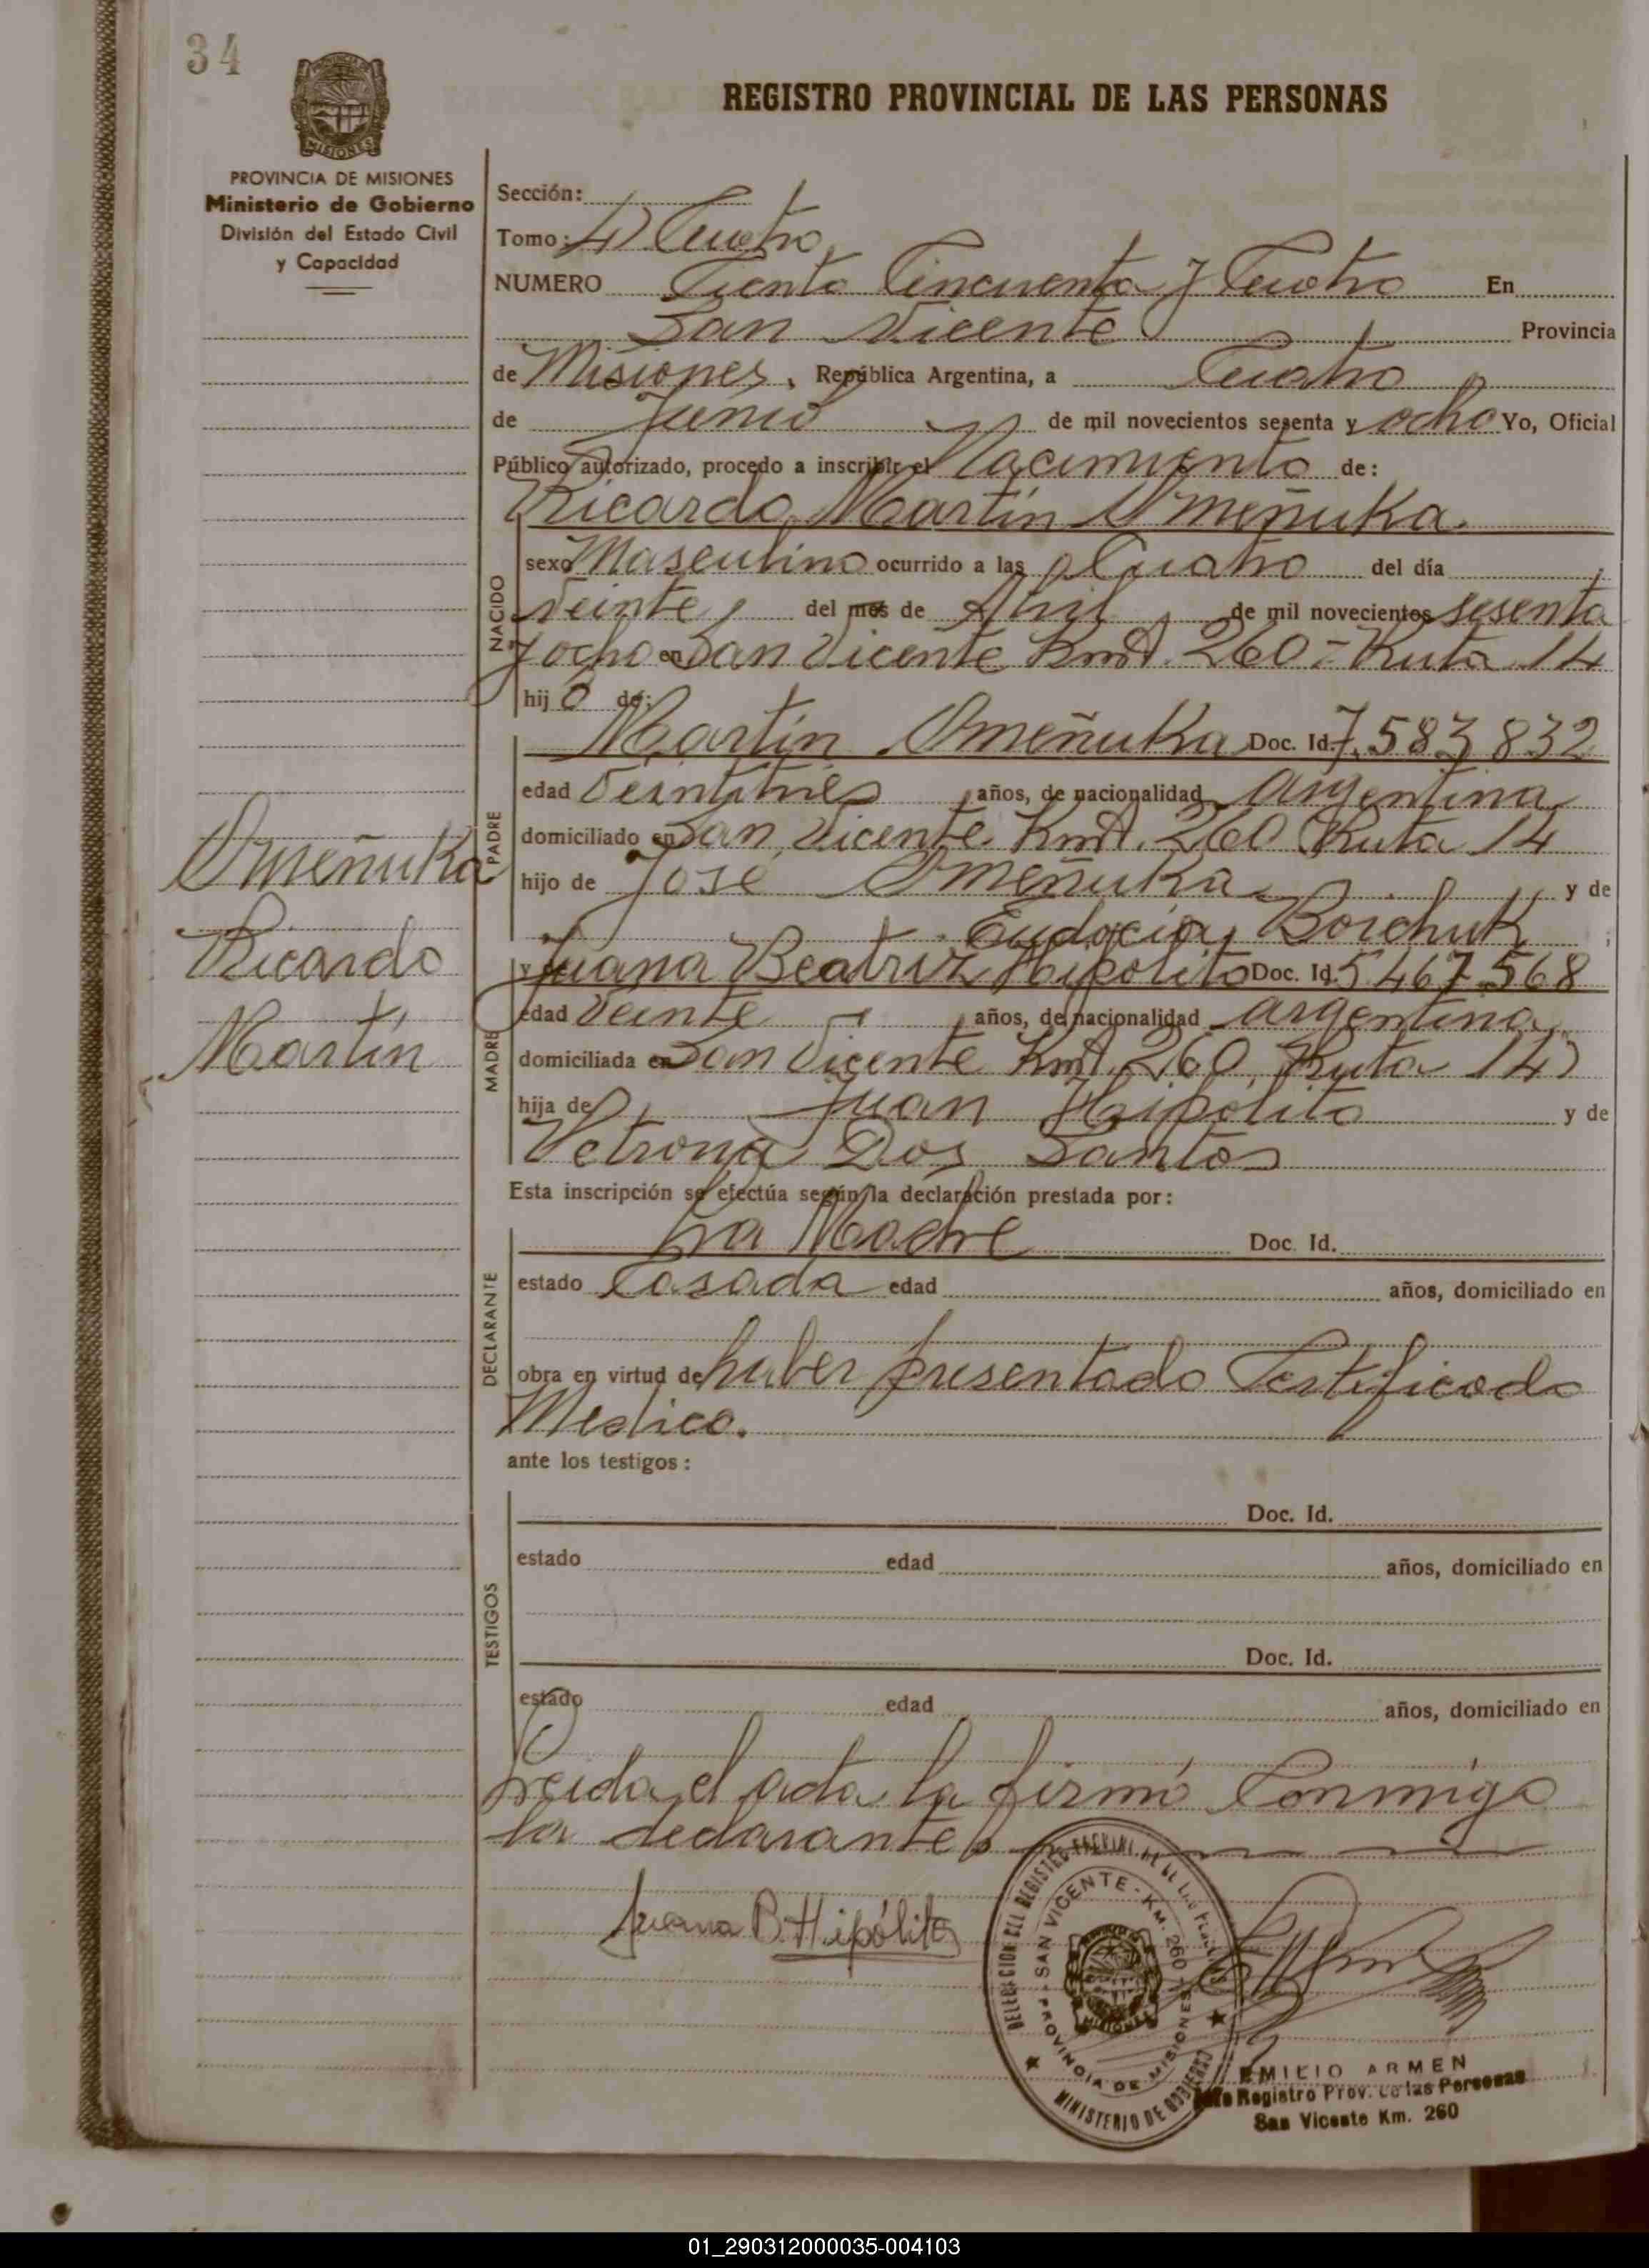 34
REGISTRO PROVINCIAL DE LAS PERSONAS
MISIONES
PROVINCIA DE MISIONES
Ministerio de Gobierno
División del Estado Civil
y Capacidad
Sección:
Tomo: 4 Cuatro
NUMERO Ciento Cincuenta y Cuatro En
San Vicente Provincia
de Misiones, República Argentina, a Cuatro
de Junio de mil novecientos sesenta y ocho Yo, Oficial
Público autorizado, procedo a inscribir el Nacimiento de:
Ricardo Martín Omeñuka.
NACIDO
sexo Masculino ocurrido a las Cuatro del día
Veinte del mes de Abril de mil novecientos sesenta
y ocho en San Vicente Kmt. 260 - Ruta 14
hijo de:
Martín Omeñuka Doc. Id. 7.583 832
PADRE
edad Veintitrés años, de nacionalidad argentina
domiciliado en San Vicente Kmt. 260 Ruta 14
hijo de José Omeñuka y de
Eudocia Borchuk
Omeñuka
Ricardo
Martín
y de Juana Beatriz Hipolito Doc. Id. 5 467 568
MADRE
edad Veinte años, de nacionalidad argentina
domiciliada en San Vicente Kmt. 260 Ruta 14
hija de Juan Hipolito y de
Vetrona Dos Santos
Esta inscripción se efectúa según la declaración prestada por:
La Madre Doc. Id.
DECLARANTE
estado Casada edad años, domiciliado en
obra en virtud de haber presentado Certificado
Medico.
ante los testigos:
Doc. Id.
TESTIGOS
estado edad años, domiciliado en
Doc. Id.
estado edad años, domiciliado en
Leida el acta la firmó Conmigo
la declarante
Juana B. Hipólito
SAN VICENTE - KM. 260
PROVINCIA DE MISIONES
MINISTERIO DE GOBIERNO
EMILIO ARMEN
Registro Prov. de las Personas
San Vicente Km. 260
01_290312000035-004103